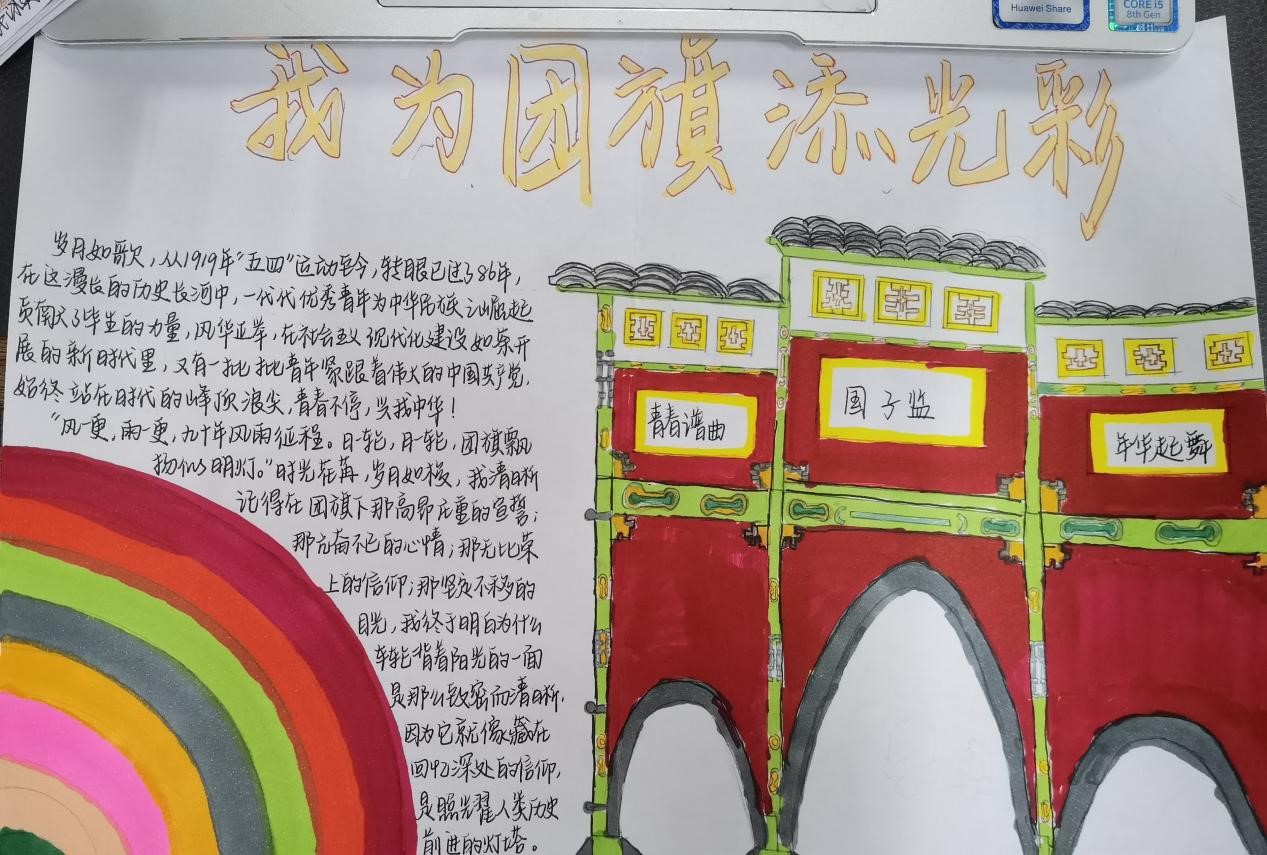 Huawei Share
CORE i5
8th Gen
我为团旗添光彩
岁月如歌，从1919年“五四”运动至今，转眼已过了86年，
在这漫长的历史长河中，一代代优秀青年为中华民族之崛起
贡献了毕生的力量，风华正举，在社会主义现代化建设如东开
展的新时代里，又有一批批青年紧跟着伟大的中国共产党，
始终站在时代的峰顶浪尖，青春不停，兴我中华！
“风一更，雨一更，九十年风雨征程。日一轮，月一轮，团旗飘
扬似明灯。”时光荏苒，岁月如梭，我清晰
记得在团旗下那高昂庄重的宣誓；
那亢奋不已的心情；那无比荣
上的信仰；那坚定不移的
目光，我终于明白为什么
年轮背着阳光的一面
是那么致密而清晰，
因为它就像藏在
回忆深处的信仰，
是照光耀人类历史
前进的灯塔。
青春谱曲
国子监
年华起舞